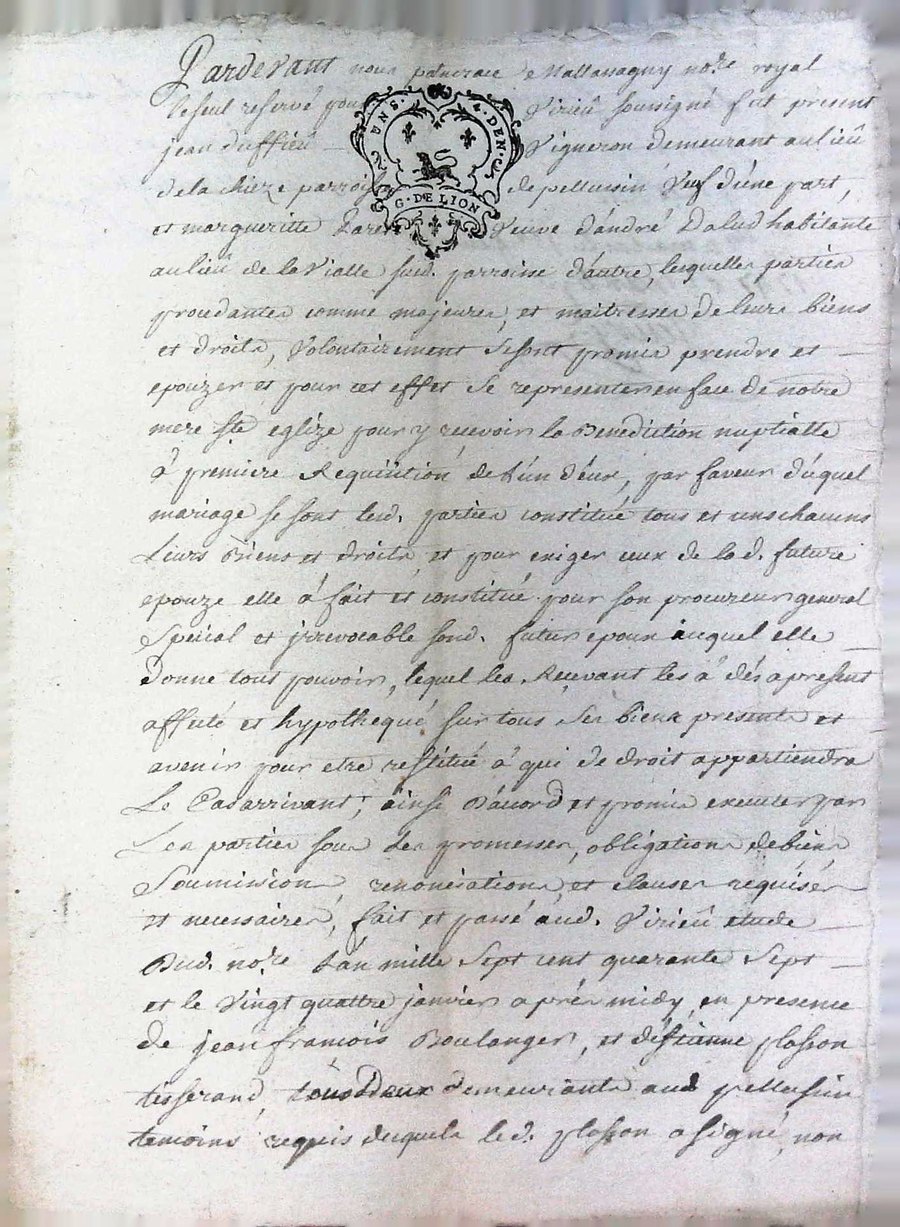 Pardevant nous pancrace de Mallavagny no.re royal
le seul reservé pour Virieû sousigné fut present
jean duffieû Vigneron demeurant au lieû
de la chieze parroisse de pellussin Veuf d'éne part
et margueritte Veuve d'andré Dalud habitante
au lieû de la Vialle sud. parroisse d'autre, lesquelles parties
procedantes comme majeures, et maitresses de leurs biens
et droits, Volontairement se sont promis prendre et
epouzer et pour cet effet se representer en face de notre
mere ste eglize pour y recevoir la Benediction nuptialle
á premiere Requisition de l'ún d'éux, par faveur dúquel
mariage se sont lesd. parties constitué tous et uns chacuns
Leurs Biens et droits, et pour exiger ceux de lad. future
epouze elle á fait et constitué pour son procureur general
Special et jrrevocable sond. futur epoux auquel elle
donne tout pouvoir, lequel les Recevant les á dés apresent
affecté et hypothequé sur tous ses biens presents et
avenir pour etre restitué á qui de droit appartiendra
Le Cas arrivant; ainsi Dácord et promis executer par
Les parties sous les promesses, obligations de biens
Soumission renonciations et clauses requisés
et necessairés, fait et passé aud. Virieû etude
Dud. no.re L'án mille Sept cent quarante Sept
et le Vingt quattre janvier aprés midy, en presence
de jean francois Boulanger, et d'éstienne plasson
tisserand, tous deux demeurants aud pellussin
temoins requis desquels led. plasson a signé, non
UNS. 4. DEN.
G. DE LION